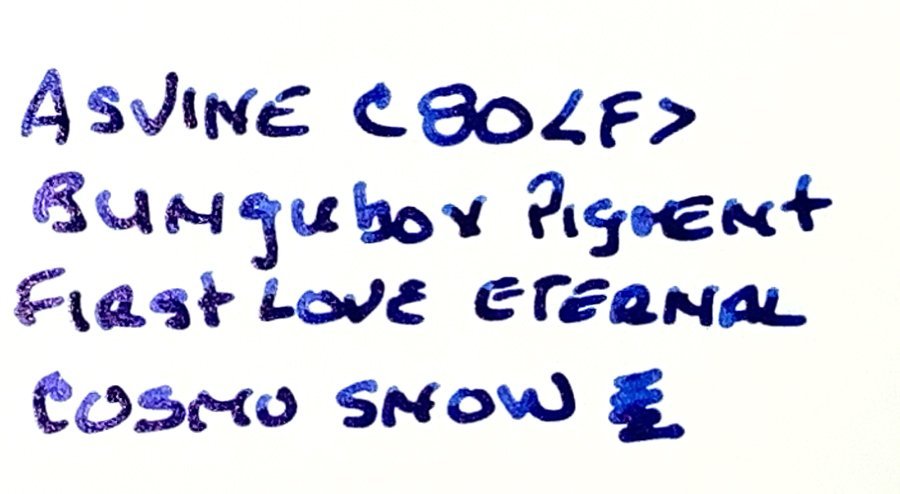 ASVINE C80 <F>
BUNgubox PIGMENT
FIRSt LOVE ETERNAL
COSMO SNOW